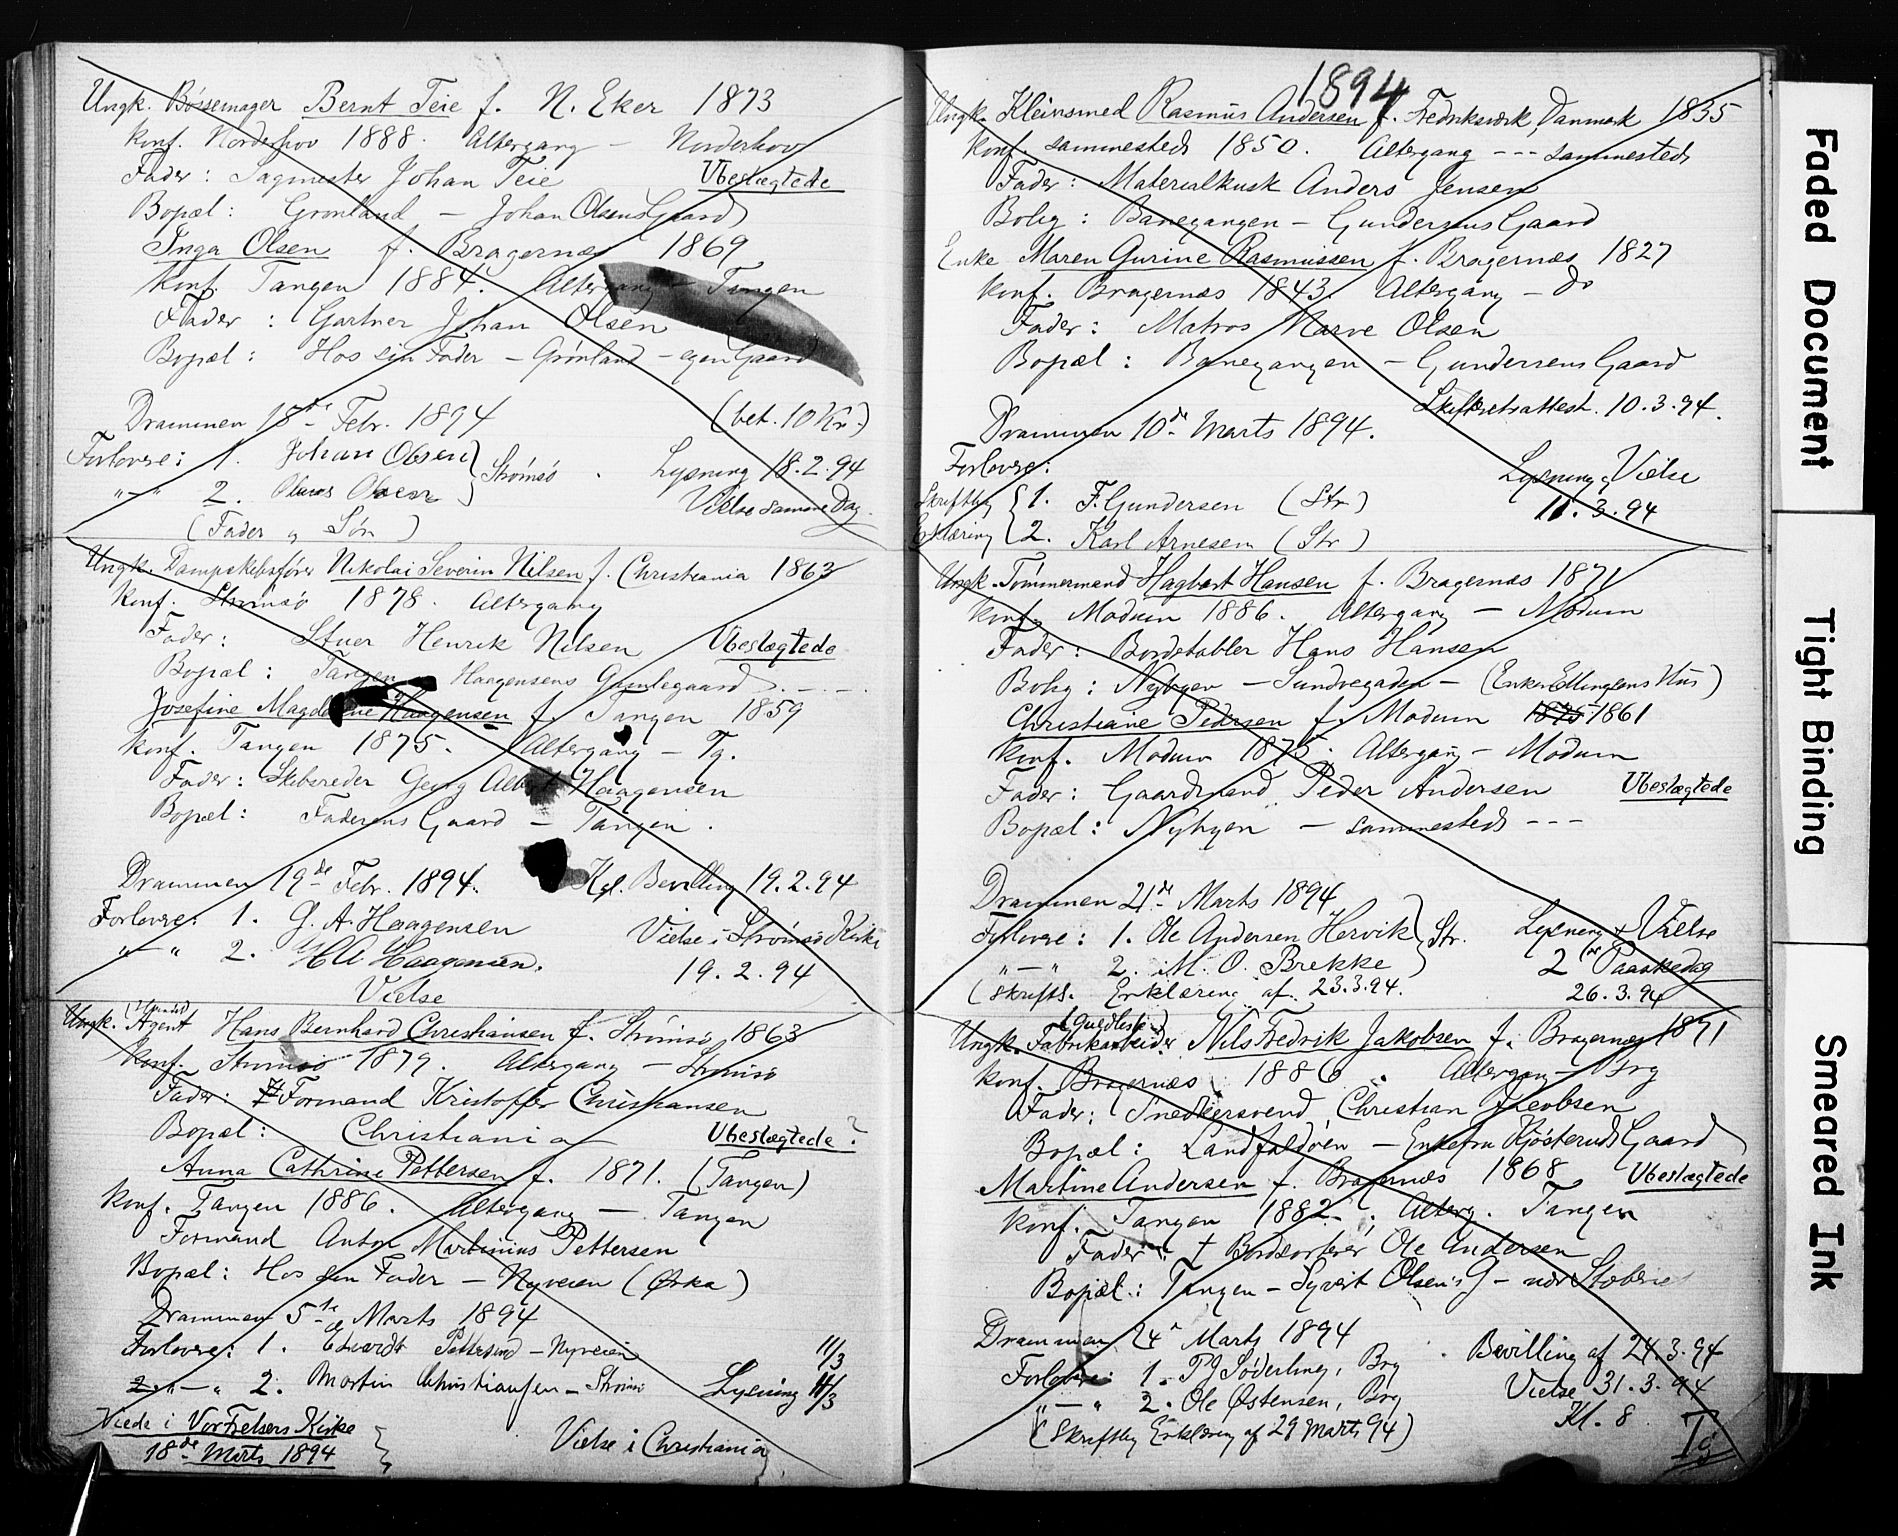 Ungk. Bøssemager Bernt Teie f. N. Eker 1873
Konf. Norderhov 1888. Altergang — Norderhov
Fader: Sagmester Johan Teie Ubeslægtede
Bopæl: Grønland — Johan Olsens Gaard
Inga Olsen f. Bragernæs 1869
Konf. Tangen 1884. Altergang — Tangen
Fader: Gartner Johan Olsen
Bopæl: Hos sin Fader — Grønland — egen Gaard
Drammen 18de Febr. 1894 (bet. 10 Kr.)
Forlovere: 1. Johan Olsen } Strømsø. Lysning 18.2.94
"—" 2. Olsen } Vielse samme Dag.
(Fader og Søn)
Ungk. Dampskibsfører Nikolai Severin Nilsen f. Christiania 1863
Konf. Strømsø 1878. Altergang
Fader: Stuer Henrik Nilsen Ubeslægtede
Bopæl: Tangen Haagensens Gamlegaard
Josefine Magdalene Haagensen f. Tangen 1859
Konf. Tangen 1875. Altergang — Tg.
Fader: Skibsreder Georg Albert Haagensen
Bopæl: Faderens Gaard — Tangen.
Drammen 19de Febr. 1894. Kgl. Bevilling 19.2.94
Forlovere: 1. G. A. Haagensen Vielse i Strømsø Kirke
"—" 2. H A Haagensen. 19.2.94
Vielse
Ungk. Agent Hans Bernhard Christiansen f. Strømsø 1863
Konf. Strømsø 1879. Altergang — Strømsø
Fader: Formand Kristoffer Christiansen
Bopæl: Christiania Ubeslægtede?
Anna Cathrine Pettersen f. 1871. (Tangen)
Konf. Tangen 1886. Altergang — Tangen
Formand Anton Martinius Pettersen
Bopæl: Hos sin Fader — Nyveien (Ørka)
Drammen 5te Marts 1894
Forlovere: 1. Edvardt — Nyveien 11/3
"—" 2. Martin Christiansen — Strømsø Lysning 11/3
Viede i Vor Frelsers Kirke
18de Marts 1894 } Vielse i Christiania
1894
Ungk. Kleinsmed Rasmus Andersen f. Fredriksværk, Danmark 1835
Konf. sammesteds 1850. Altergang --- sammesteds
Fader: Materialkusk Anders Jensen
Bolig: Banegangen — Gundersens Gaard
Enke Maren Gurine Rasmussen f. Bragernæs 1827
Konf. Bragernæs 1843. Altergang — do
Fader: Matros Narve Olsen
Bopæl: Banegangen — Gundersens Gaard
Skifteretsattest. 10.3.94.
Drammen 10de Marts 1894.
Forlovere: Lysning og Vielse
Skriftlig { 1. F. Gundersen (Str) 11.3.94
Erklæring { 2. Karl Arnesen (Str)
Ungk. Tømmermand Hagbart Hansen f. Bragernæs 1871
Konf. Modum 1886. Altergang — Modum
Fader: Bordstabler Hans Hansen
Bolig: Nybyen — Sundvegaden — (Enke Ellingsens Hus)
Christiane Pedersen f. Modum 1875 1861
Konf. Modum 1875. Altergang — Modum
Fader: Gaardmand Peder Andersen Ubeslægtede
Bopæl: Nybyen — sammesteds ---
Drammen 21de Marts 1894
Forlovere: 1. Ole Andersen Hervik } Str. Lysning + Vielse
"—" 2. M. O. Brekke } 2den Paaskedag
(Skriftl. Erklæring af 23.3.94. 26.3.94
Ungk. Fabrikarbeider Nils Fredrik Jakobsen f. Bragernæs 1871
Konf. Bragernæs 1886. Altergang — Brg
Fader: Snedkersvend Christian Jacobsen
Bopæl: Landfaldøen — Enkefru Kjøsteruds Gaard
Martine Andersen f. Bragernæs 1868 Ubeslægtede
Konf. Tangen 1882; Alterg. Tangen
Fader: † Bordsorterer Ole Andersen
Bopæl: Tangen — Syvert Olsens G — nær
Drammen 24 Marts 1894 Bevilling af 24.3.94
Forlovere: 1. Søderling, Brg Vielse 31.3.94
"—" 2. Ole Østensen, Brg Kl. 8
(Skriftlig Erklæring af 29 Marts 94) Tg
Faded Document
Tight Binding
Smeared Ink